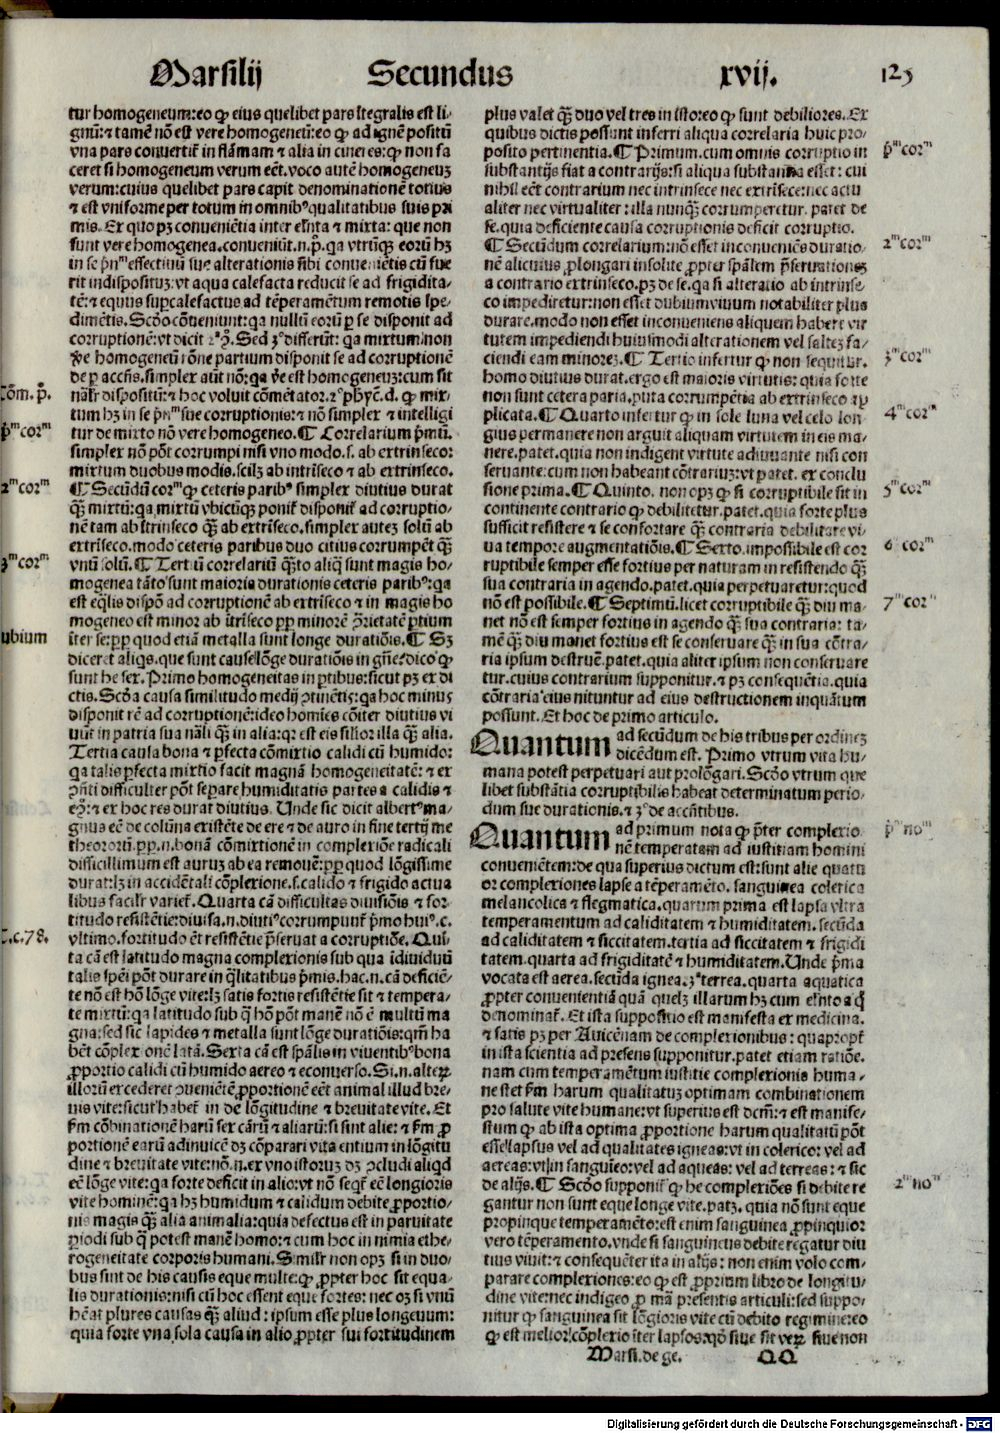 Marsilij Secundus xvij. 125
tur homogeneum: eo qͥ eius quelibet pars ītegralis est li⸗
gnū: ⁊ tamē nō est vere homogeneū: eo ꝙ ad ignē positū
vna pars convertit̄ in flāmam ⁊ alia in cineres: ꝙ non fa
ceret si homogeneum verum eēt. voco autē homogeneuꝫ
verum: cuius quelibet pars capit denominationē totius
⁊ est vniforme per totum in omnibꝰ qualitatibus suis pri
mis. Ex quo pꝫ conueniētia inter elīnta ⁊ mixta: que non
sunt vere homogenea. conueniūt .n. p̄. qa vtrūqꝫ eorū hꝫ
in se p̄nᵐ effectiuū sue alterationis sibi conuenientis cū fue
rit indispositꝫ: vt aqua calefacta reducit se ad frigidita⸗
tē: ⁊ equus supcalefactus ad tēperamētum remotis īpe⸗
dimētis. Scōo cōueniunt: qa nullū eorū p se disponit ad
corruptionē: vt dicit 2ᵃ ꝯ̄. Sed 3ᵒ differūt: qa mixtum non
vͤe homogeneū rōne partium disponit se ad corruptionē
de p accn̄s. simplex aūt nō: qa vͤe est homogeneuꝫ: cum sit
nālr̄ dispositū: ⁊ hoc voluit cōmētator. 2ᵒ phyc̄. d. ꝙ mix⸗
tum hꝫ in se p̄nᵐ sue corruptionis: ⁊ nō simplex ⁊ intelligi
tur de mixto nō vere homogeneo. ¶ Correlarium p̄mū.
simplex nō pōt corrumpi nisi vno modo. s. ab extrinseco:
mixtum duobus modis. scilꝫ ab intrīseco ⁊ ab extrinseco.
¶ Secūdū corᵐ ꝙ ceteris paribꝰ simplex diutius durat
qꝫ̄ mixtū: qa mixtū vbicūqꝫ ponit̄ disponit̄ ad corruptio⸗
nē tam ab ītrinseco qꝫ̄ ab extrīseco. simplex auteꝫ solū ab
extrīseco. modo ceteris paribus duo citius corrumpēt qꝫ̄
vnū solū. ¶ Tertiū correlariū qꝫ̄to aliq̄ sunt magis ho⸗
mogenea tāto sunt maioris durationis ceteris paribꝰ: qa
est eq̄lis dispō ad corruptionē ab extrīseco ⁊ in magis ho
mogeneo est minor ab ītrīseco ꝓp minorē ꝯ̄rietatē ptium
īter se: ꝓp quod etiā metalla sunt longe duratiōis. ¶ Sꝫ
diceret aliqs. que sunt cause lōge duratiōis in gn̄e: dico ꝙ
sunt he sex. Primo homogeneitas in ptibus: sicut pꝫ ex di
ctis. Scōa causa similitudo medij ꝯtinētis: qa hoc minus
disponit rē ad corruptionē: ideo homīes cōiter diutius vi
uūt in patria sua nāli qꝫ̄ in alia: qr est eis silior illa qꝫ̄ alia.
Tertia causa bona ⁊ pfecta cōmixtio calidi cū humido:
qa talis pfecta mixtio facit magnā homogeneitatē: ⁊ ex
ꝯn̄ti difficulter pōt separe humiditatis partes a calidis ⁊
eꝯ̄: ⁊ ex hoc res durat diutius. Unde sic dicit albertꝰ ma⸗
gnus eē de colūna existēte de ere ⁊ de auro in fine tertij me
theororū. ꝓp .n. bonā cōmixtionē in complexiōe radicali
difficillimum est auruꝫ ab ea remouē: ꝓp quod lōgissime
durat: lꝫ in accidētali cōplexione. s. calido ⁊ frigido actua
libus facilr̄ variet̄. Quarta cā difficultas diuisiōis ⁊ for⸗
titudo resistētie: diuisa .n. diutiꝰ corrumpunt̄ p̄mo huiꝰ. c.
vltimo. fortitudo ēt resistētie p̄seruat a corruptiōe. Quī⸗
ta cā est latitudo magna complexionis sub qua īdiuiduū
talis spēi pōt durare in q̄litatibus p̄mis. hac .n. cā deficiē⸗
te nō est hō lōge vite: lꝫ satis fortis resistētie sit ⁊ tempera⸗
te mixtū: qa latitudo sub q̄ hō pōt manē nō ē multū ma
gna: sed sic lapides ⁊ metalla sunt lōge duratiōis: qm̄ ha
bēt cōplexionē latā. Sexta cā est spālis in viuentibꝰ bona
ꝓportio calidi cū humido aereo ⁊ econuerso. Si .n. alteꝝ
illorū excederet ꝯueniētē ꝓportionē eēt animal illud bre⸗
uis vite: sicut habet̄ in de lōgitudine ⁊ breuitate vite. Et
fm̄ cōbinationē harū sex cārū ⁊ aliarū: si sint alie: ⁊ fm̄ ꝓ
portionē earū adinuicē dꝫ cōparari vita entium in lōgitu
dine ⁊ breuitate vite: nō .n. ex vno istoruꝫ dꝫ ꝯcludi aliqd
eē lōge vite: qa forte deficit in alio: vt nō seqt̄ eē longioris
vite hominē: qa hꝫ humidum ⁊ calidum debite ꝓportio⸗
nis magis qꝫ̄ alia animalia: quia defectus est in paruitate
piodi sub q̄ potest manē homo: ⁊ cum hoc in nimia ethe⸗
rogeneitate corporis humani. Similr̄ non opꝫ si in duo⸗
bus sint de his causis eque multe: ꝙ ꝓpter hoc sit equa⸗
lis durationis: nisi cū hoc essent eque fortes: nec oꝫ si vnū
hēat plures causas qꝫ̄ aliud: ipsum esse plus longeuum:
quia forte vna sola causa in alio ꝓpter sui fortitudinem
Cōm. p̄.
p̄ᵐ corᵐ
2ᵐ corᵐ
3ᵐ corᵐ
ubium
C. c. 78.
plus valet qꝫ̄ duo vel tres in isto: eo ꝙ sunt debiliores. Ex
quibus dictis possunt inferri aliqua correlaria huic pro⸗
posito pertinentia. ¶ Primum. cum omnis corruptio in
substantijs fiat a contrarijs: si aliqua substantia esset: cui
nihil eēt contrarium nec intrinsece nec extrīsece: nec actu
aliter nec virtualiter: illa nunqꝫ̄ corrumperetur. patet de
se. quia deficiente causa corruptionis deficit corruptio.
¶ Secūdum correlarium: nō esset inconueniēs duratio⸗
nē alicuius ꝓlongari insolite ꝓpter spālem p̄seruationeꝫ
a contrario extrinseco. pꝫ de se. qa si alteratio ab intrinse⸗
co impediretur: non esset dubium viuum notabiliter plus
durare. modo non esset inconueniens aliquem habere vir
tutem impediendi huiusmodi alterationem vel salteꝫ fa⸗
ciendi eam minoreꝫ. ¶ Tertio infertur ꝙ non sequitur.
homo diutius durat. ergo est maioris virtutis: quia forte
non sunt cetera paria. puta corrumpētia ab extrinseco ap
plicata. ¶ Quarto infertur ꝙ in sole luna vel celo lon⸗
gius permanere non arguit aliquam virtutem in eis ma⸗
nere. patet. quia non indigent virtute adiuuante nisi con
seruante: cum non habeant cōtrarium: vt patet. ex conclu
sione prima. ¶ Quinto. non opꝫ ꝙ si corruptibile sit in
continente contrario ꝙ debilitetur. patet. quia forte plus
sufficit resistere ⁊ se confortare qꝫ̄ contraria debilitare vi⸗
ua tempore augmentatiōis. ¶ Sexto. impossibile est cor
ruptibile semper esse fortius per naturam in resistendo qꝫ̄
sua contraria in agendo. patet. quia perpetuaretur: quod
nō est possibile. ¶ Septimū. licet corruptibile qꝫ̄ diu ma⸗
net nō est semper fortius in agendo qꝫ̄ sua contraria: ta⸗
mē qꝫ̄ diu manet fortius est se conseruare qꝫ̄ in sua cōtra⸗
ria ipsum destruē. patet. quia aliter ipsum non conseruare
tur. cuius contrarium supponitur. ⁊ pꝫ consequētia. quia
cōtraria eius nituntur ad eius destructionem inquātum
possunt. Et hoc de primo articulo.
Quantum ad secūdum de his tribus per ordineꝫ
dicēdum est. Primo vtrum vita hu⸗
mana potest perpetuari aut prolōgari. Scōo vtrum que
libet substātia corruptibilis habeat determinatum perio⸗
dum sue durationis. ⁊ 3ᵒ de accn̄tibus.
Quantum ad primum nota ꝙ p̄ter complexio
nē temperatam ad iustitiam homini
conueniētem: de qua superius dictum est: sunt alie quatu
or complexiones lapse a tēperamēto. sanguinea colerica
melancolica ⁊ flegmatica. quarum prima est lapsa vltra
temperamentum ad caliditatem ⁊ humiditatem. secūda
ad caliditatem ⁊ siccitatem. tertia ad siccitatem ⁊ frigidi
tatem. quarta ad frigiditatē ⁊ humiditatem. Unde p̄ma
vocata est aerea. secūda ignea. 3ᵃ terrea. quarta aquatica
ꝓpter conuenientiā quā quelꝫ illarum hꝫ cum elīnto a q̄
denominat̄. Et ista suppositio est manifesta ex medicina.
⁊ satis pꝫ per Auicēnam de complexionibus: quapropt̄
in ista scientia ad presens supponitur. patet etiam ratiōe.
nam cum temperamētum iustitie complexionis huma⸗
ne stet fm̄ harum qualitatuꝫ optimam combinationem
pro salute vite humane: vt superius est dcm̄: ⁊ est manife⸗
stum ꝙ ab ista optima ꝓportione harum qualitatū pōt
esse lapsus vel ad qualitates igneas: vt in colerico: vel ad
aereas: vt in sanguīeo: vel ad aqueas: vel ad terreas: ⁊ sic
de alijs. ¶ Scōo supponit̄ ꝙ he complexiōes si debite re
gantur non sunt eque longe vite. patꝫ. quia nō sunt eque
propinque temperamēto: est enim sanguinea ꝓpinquior
vero tēperamento. vnde si sanguineus debite regatur diu
tius viuit: ⁊ consequēter ita in alijs: non enim volo com⸗
parare complexiones: eo ꝙ est ꝓprium libro de longitu⸗
dine vite: nec indigeo ꝓ mā presentis articuli: sed suppo⸗
nitur ꝙ sanguinea sit lōgioris vite cū debito regimine: eo
ꝙ est melior cōplexio īter lapsos: qō siue sit veꝝ siue non
Marsi. de ge. QQ
p̄ᵐ corᵐ
2ᵐ corᵐ
3ᵐ corᵐ
4ᵐ corᵐ
5ᵐ corᵐ
6 corᵐ
7ᵐ corᵐ
p̄ᵐ noᵐ
2ᵐ noᵐ
Digitalisierung gefördert durch die Deutsche Forschungsgemeinschaft - DFG